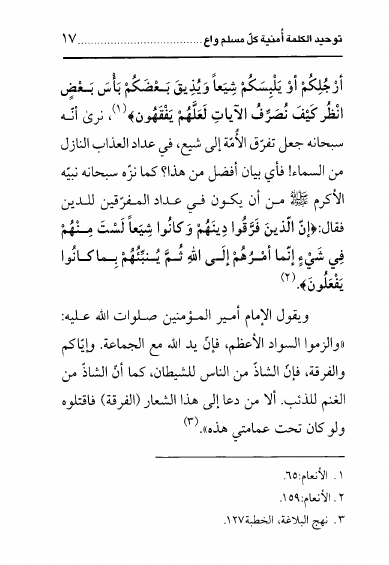 توحيد الكلمة أُمنية كلّ مسلم واع ........................................ ١٧
أرْجُلِكُمْ أوْ يَلْبِسَكُمْ شِيَعاً وَيُذِيقَ بَعْضَكُمْ بَأْسَ بَعْضٍ
انْظُر كَيْفَ نُصَرِّفُ الآياتِ لَعَلَّهُمْ يَفْقَهُون﴾(١)، نرىٰ أنـه
سبحانه جعل تفرّق الأُمّة إلى شيع، في عداد العذاب النازل
من السماء! فأي بيان أفضل من هذا؟ كما نزّه سبحانه نبيّه
الأكرم ﷺ مـن أن يكـون فـي عـداد المـفرّقين للـدين
فقال: ﴿إنّ الّذينَ فَرَّقُوا دِينَهُمْ وَكَانُوا شِيَعاً لَسْتَ مِنْهُمْ
فِي شَيْءٍ إنّما أمْرُهُمْ إلَـى اللهِ ثُـمَّ يُـنبِّئُهُمْ بِـما كـانُوا
يَفْعَلُونَ﴾.(٢)
ويقول الإمام أمـير المـؤمنين صـلوات الله عليه:
«والزموا السواد الأعظم، فإنّ يد الله مع الجماعة. وإيّاكم
والفرقة، فإنّ الشاذّ من الناس للشيطان، كما أنّ الشاذّ من
الغنم للذئب. ألا من دعا إلى هذا الشعار (الفرقة) فاقتلوه
ولو كان تحت عمامتي هذه».(٣)
١ . الأنعام:٦٥.
٢ . الأنعام:١٥٩.
٣ . نهج البلاغة، الخطبة١٢٧.